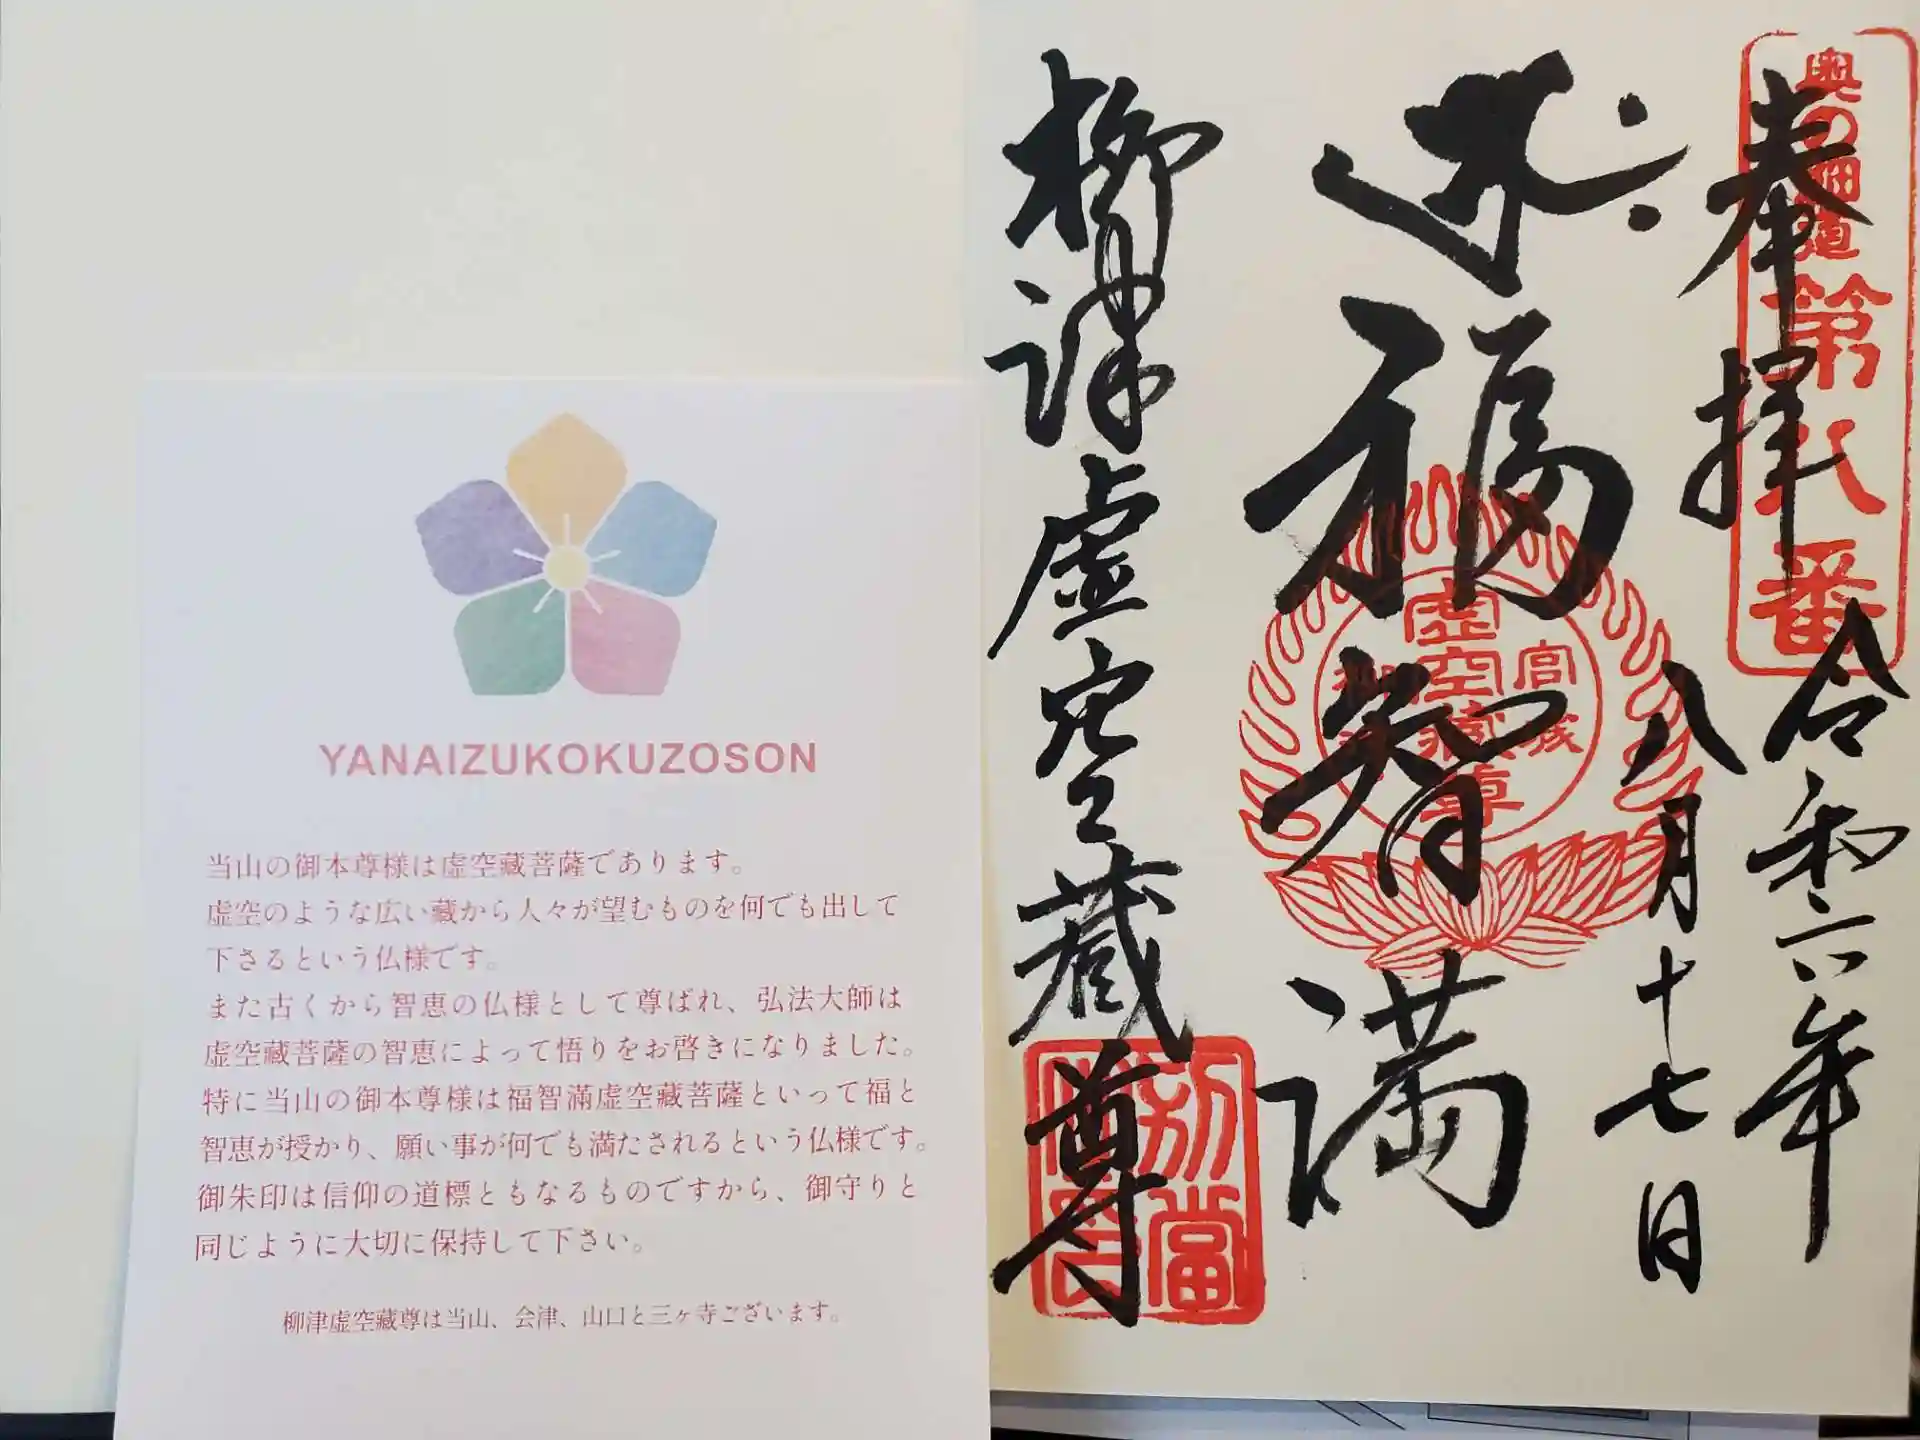 奉拝
奥の細道
第八番
令和六年
八月十七日
福智満
宮城
虚空藏尊
柳津
柳津虚空蔵尊
別當
YANAIZUKOKUZOSON
当山の御本尊様は虚空藏菩薩であります。
虚空のような広い藏から人々が望むものを何でも出して
下さるという仏様です。
また古くから智恵の仏様として尊ばれ、弘法大師は
虚空藏菩薩の智恵によって悟りをお啓きになりました。
特に当山の御本尊様は福智滿虚空藏菩薩といって福と
智恵が授かり、願い事が何でも満たされるという仏様です。
御朱印は信仰の道標ともなるものですから、御守りと
同じように大切に保持して下さい。
柳津虚空藏尊は当山、会津、山口と三ヶ寺ございます。